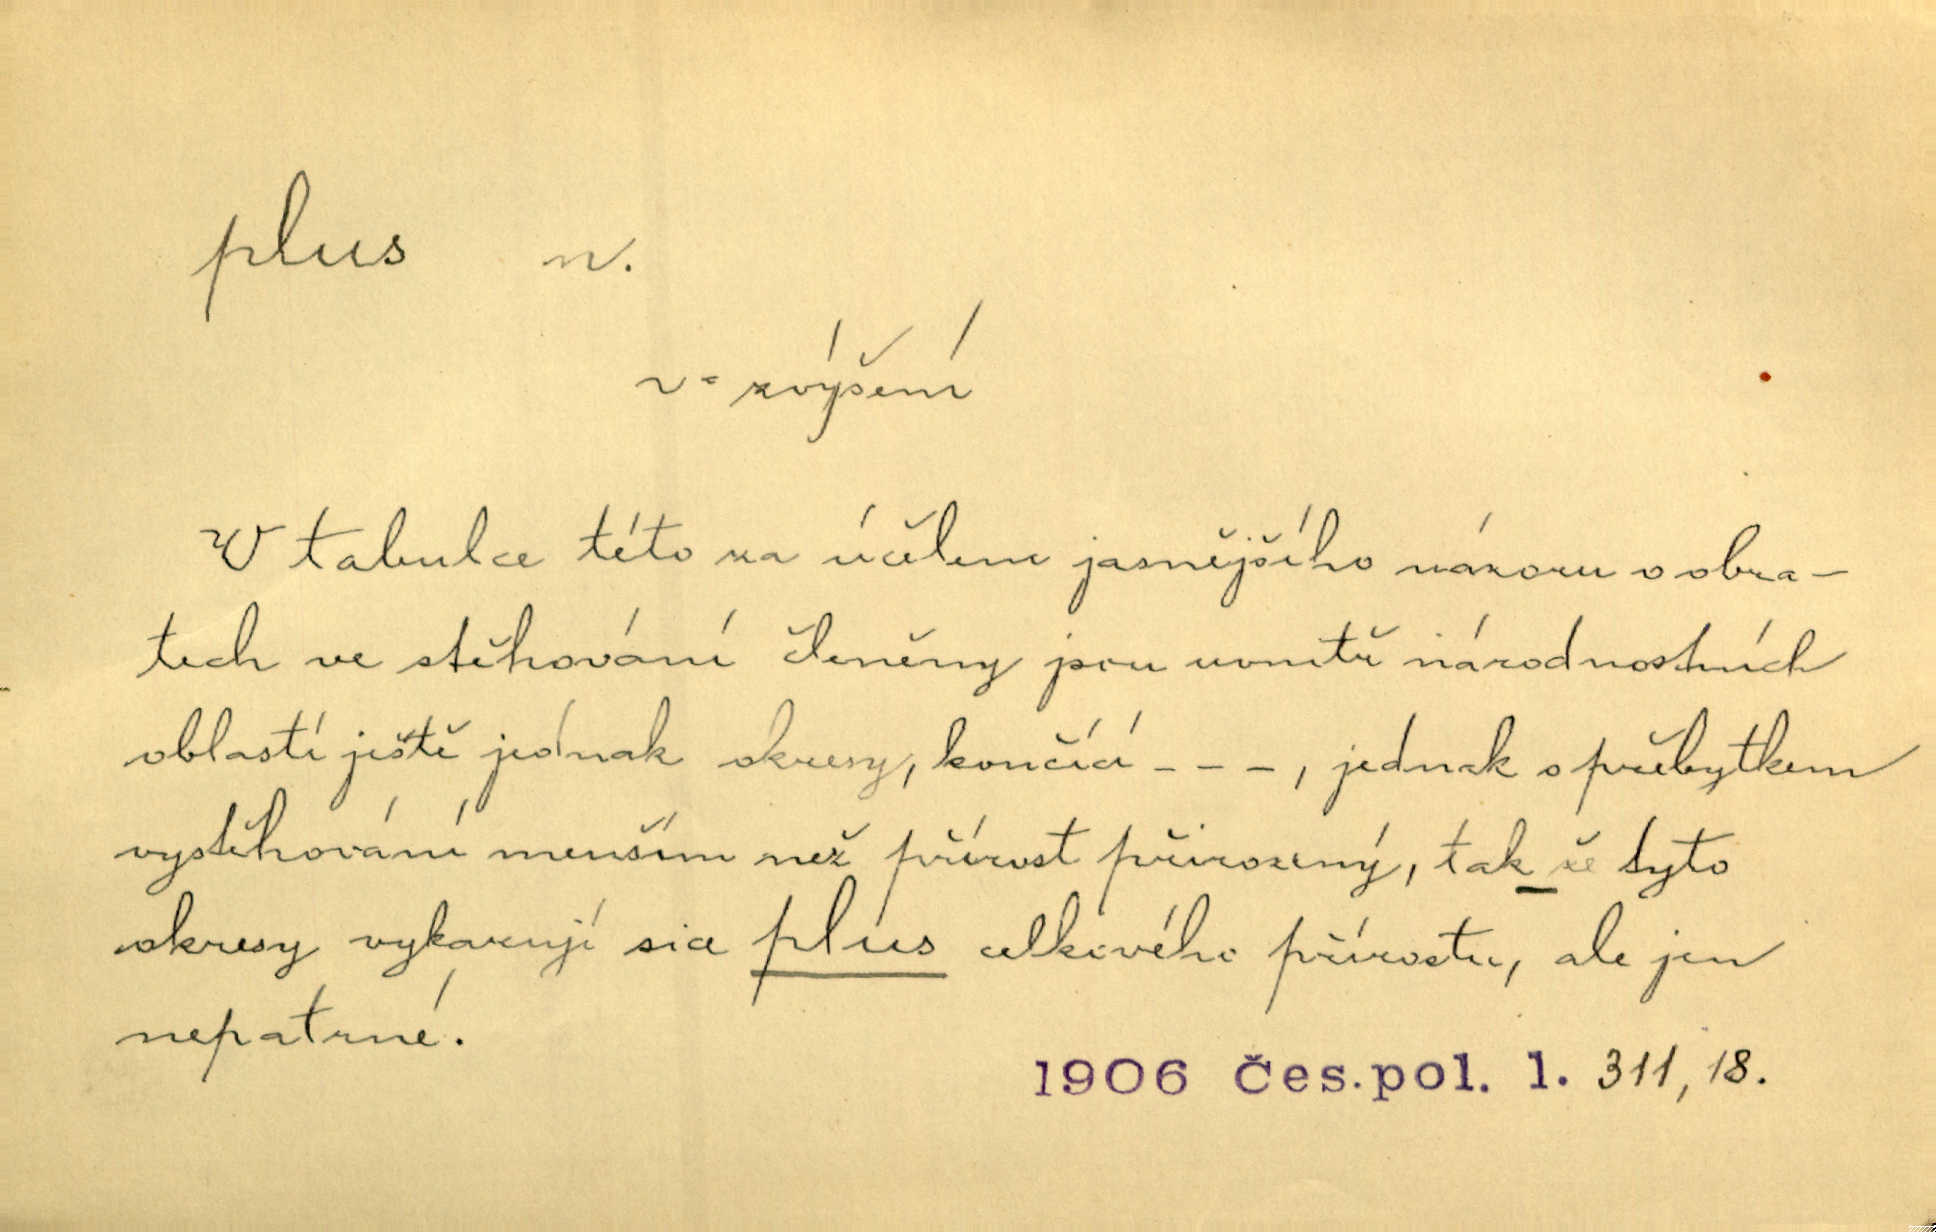 plus n.
v = zvýšení
V tabulce této za účelem jasnějšího názoru o obra-
tech ve stěhování členěny jsou uvnitř národnostních
oblastí ještě jednak okresy, končící - - -, jednak s přebytkem
vystěhování menším než přírost přirozený, tak_že tyto
okresy vykazují sice plus celkového přírostu, ale jen
nepatrné.
1906 Čes.pol. 1. 311, 18.